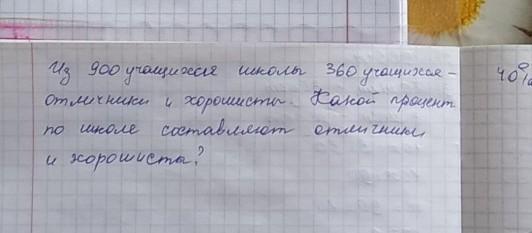 Из 900 учащихся школы 360 учащихся -
отличники и хорошисты. Какой процент
по школе составляют отличники
и хорошисты?
40%